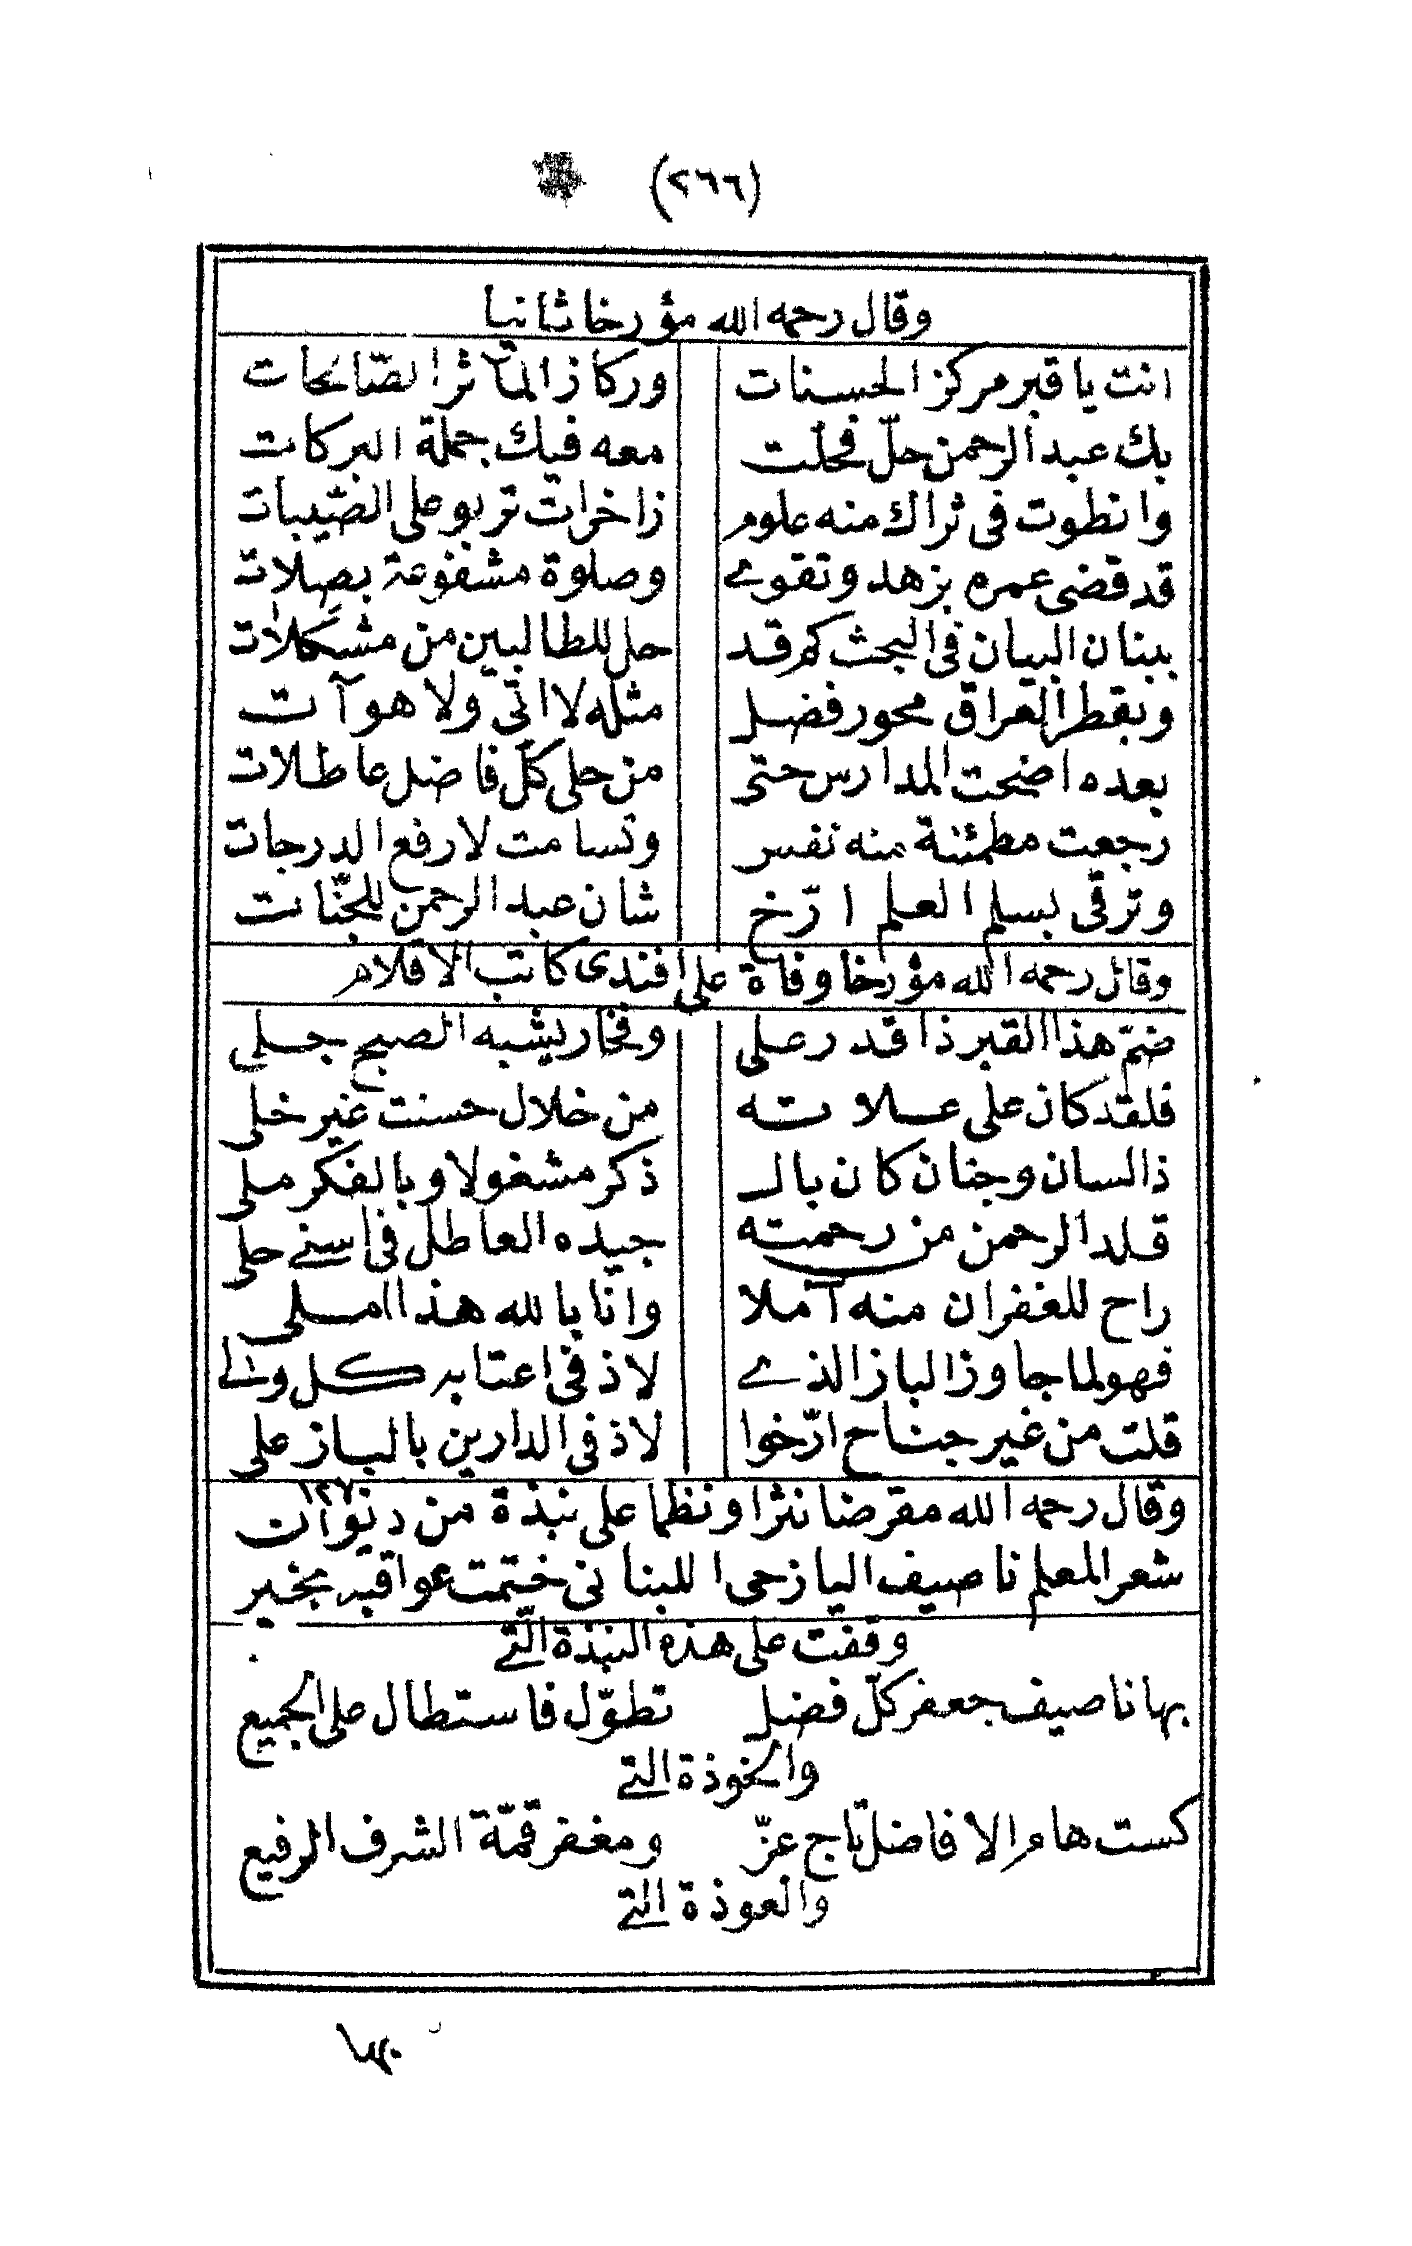 (٢٦٦)
وقال رحمه الله مؤرخا ثانيا
انت يا قبر مركز الحسنات وركاز المآثر الصّالحات
بك عبد الرحمن حلّ فحلّت معه فيك جملة البركات
وانطوت فى ثراك منه علوم زاخرات تربو على الصّيبات
قد قضى عمره بزهد وتقوے وصلوة مشفوعة بصلات
ببنان البيان فى البحث كم قد حل للطالبين من مشكلات
وبقطر العراق محور فضل مثله لا اتى ولا هو آت
بعده اضحت المدارس حتى من حلى كلّ فاضل عاطلات
رجعت مطمئنة منه نفس وتسامت لارفع الدرجات
وترقّى بسلم العلم ارّخ شان عبد الرحمن للجنّات
وقال رحمه الله مؤرخا وفاة على افندى كاتب الاقلام
ضمّ هذا القبر ذا قدر على وفخار يشبه الصبح جلى
فلقد كان على علاته من خلال حسنت غير خلى
ذا لسان وجنان كان بالـ ذكر مشغولا وبالفكر ملى
قلد الرحمن من رحمته جيده العاطل فى اسنے حلى
راح للغفران منه آملا وانا بالله هذا املى
فهو لما جاوز الباز الذے لاذ فى اعتابه كل ولے
قلت من غير جناح ارّخوا لاذ فى الدارين بالباز على
١٢٧
وقال رحمه الله مقرضا نثرا ونظما على نبذة من ديوان
شعر المعلم ناصيف اليازحى اللبنانى ختمت عواقبه بخير
وقفت على هذه النبذة الّتے
بها ناصيف جعفر كلّ فضل تطوّل فاستطال على الجميع
والخوذة التے
كست هام الافاضل تاج عزّ ومغفر قمّة الشرف الرفيع
والعوذة التے